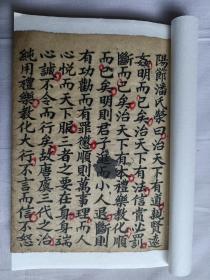 陽節潘氏榮曰治天下有道親賢遠
奸明而已矣治天下有法信賞必罰
斷而已矣治天下有本禮樂教化順
而已矣明則君子進而小人退斷則
有功勸而有罪懲順則萬事理而人
心悅而天下服三者之要在身身端
心誠不令而行矣故唐虞三代之治
純用禮樂教化大行不言而信不怒